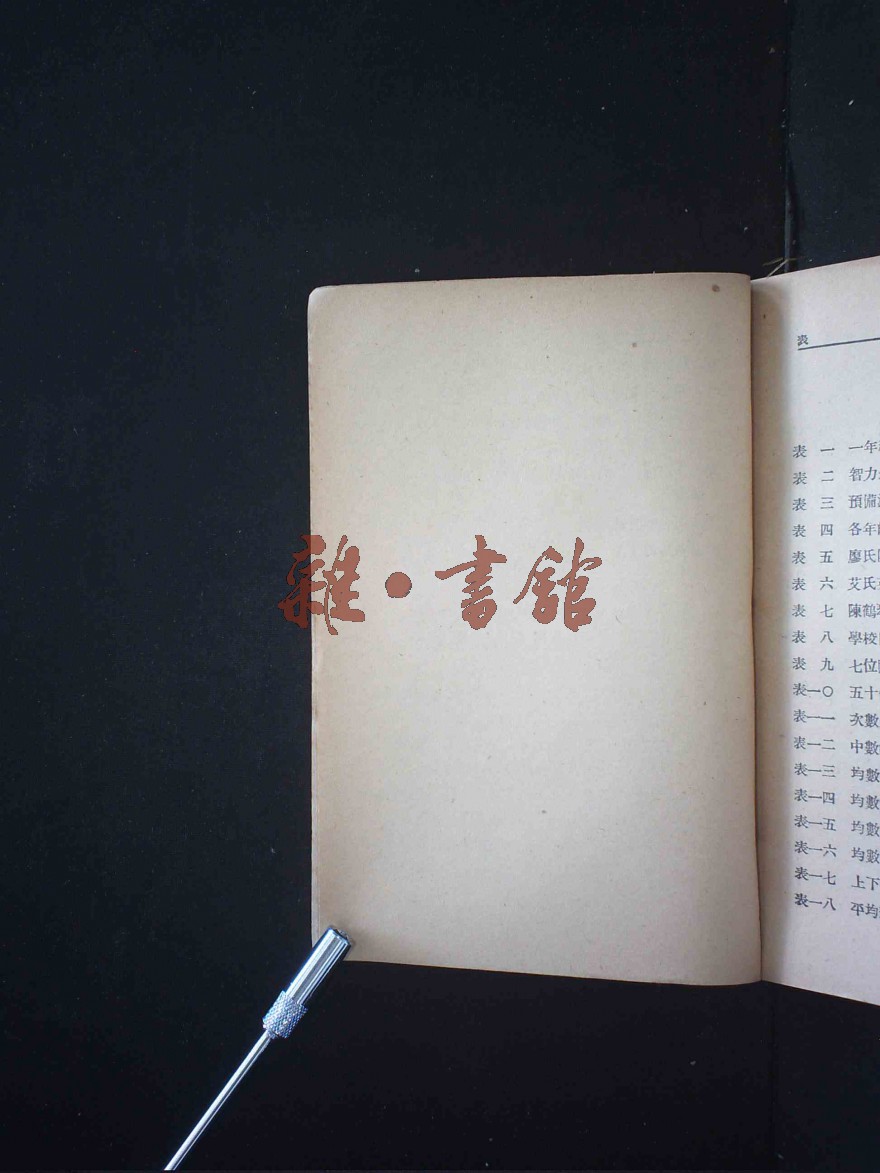 雜·書館
表
表 一 一年
表 二 智力
表 三 預備
表 四 各年
表 五 廖氏
表 六 艾氏
表 七 陳鶴
表 八 學校
表 九 七位
表一〇 五十
表一一 次數
表一二 中數
表一三 均數
表一四 均數
表一五 均數
表一六 均數
表一七 上下
表一八 平均